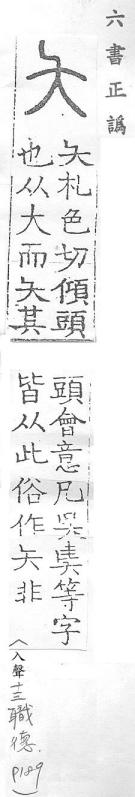 六書正譌
夨
夨札色切傾頭
也从大而夨其
頭會意凡吳奊等字
皆从此俗作夨非
(入聲十三職德. P189)